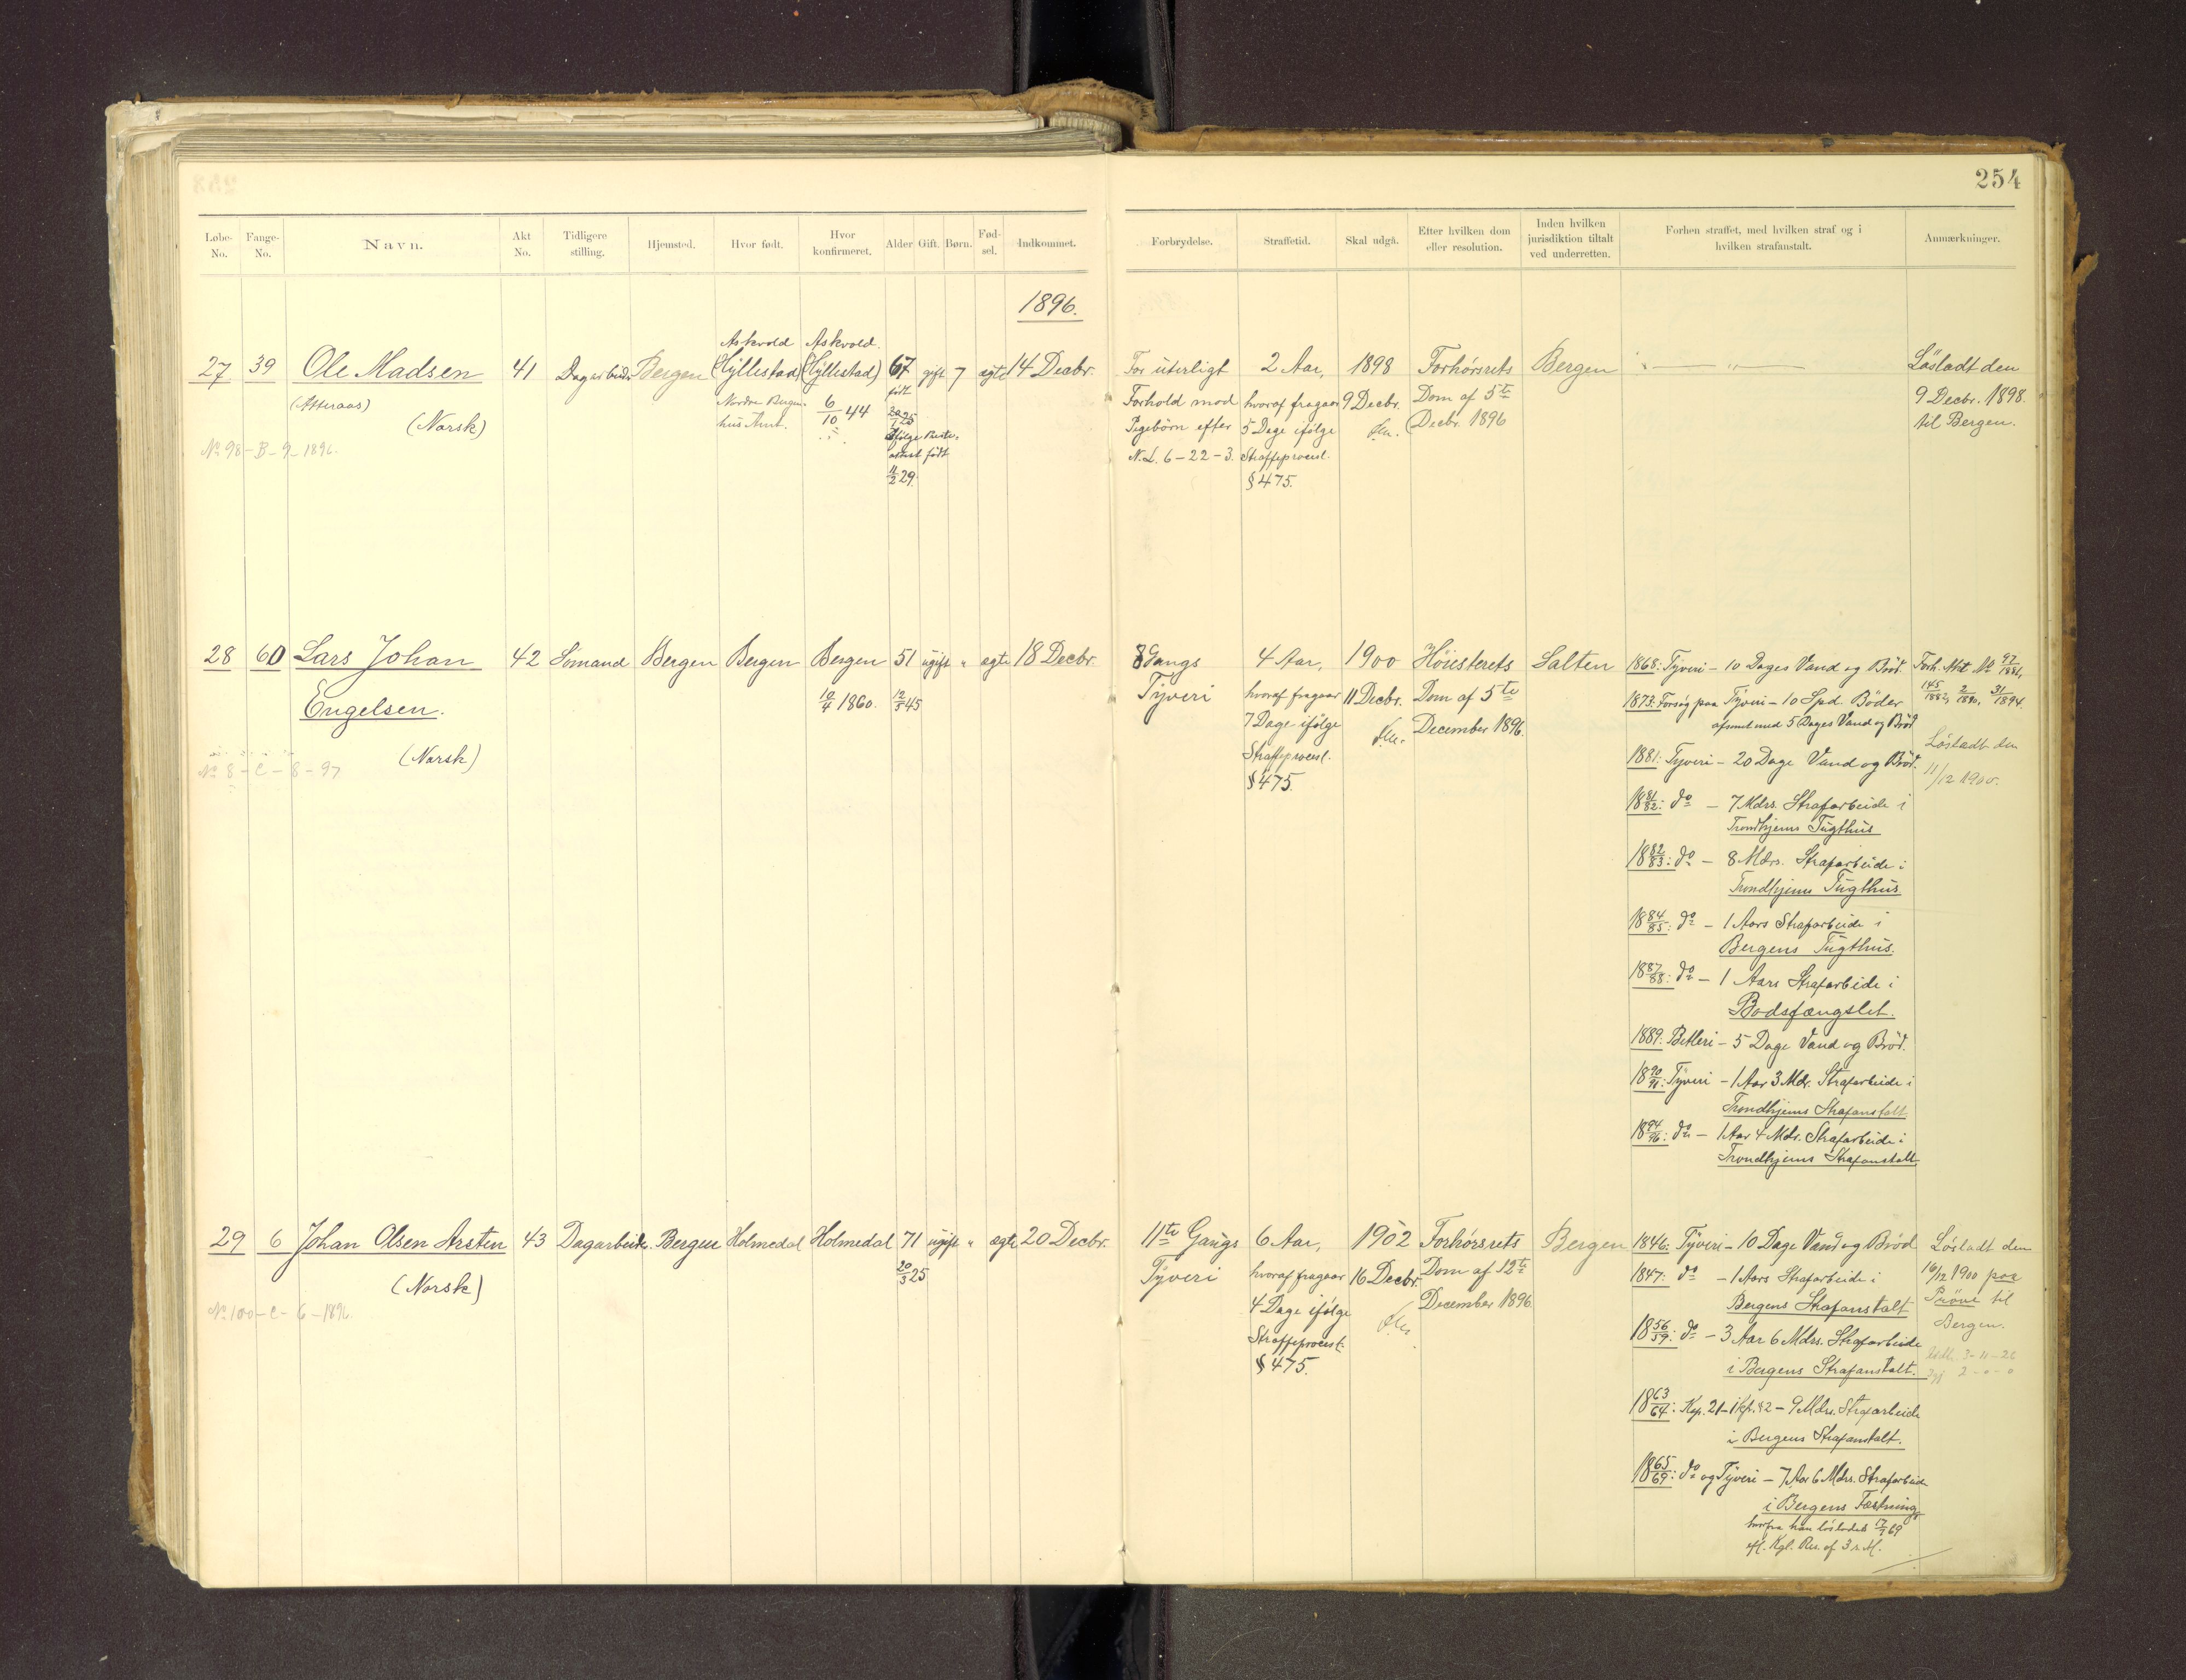 254
Løbe-No. Fange-No. Navn. Akt No. Tidligere stilling. Hjemsted. Hvor født. Hvor konfirmeret. Alder Gift. Børn. Fød-sel. Indkommet.
Forbrydelse. Straffetid. Skal udgå. Efter hvilken dom eller resolution. Inden hvilken jurisdiktion tiltalt ved underretten. Forhen straffet, med hvilken straf og i hvilken strafanstalt. Anmærkninger.
1896.
27 39 Ole Madsen 41 Dagarbeider Bergen
(Atteraas)
(Norsk)
No 98-B-9-1896.
Askvold
(Hyllestad)
Nordre Bergen-
hus Amt.
Askvold.
(Hyllestad)
6/10 44
67 gift 7 ægte 14 Decbr.
født
Ifølge Præste-
attest født
11/2 29.
For uterligt
Forhold mod
Pigebørn efter
N.L. 6-22-3.
2 Aar,
hvoraf fragaar
5 Dage ifølge
Straffeprocesl.
§ 475.
1898
9 Decbr.
Forhørsrets
Dom af 5te
Decbr. 1896
Bergen
" — " —
Løsladt den
9 Decbr. 1898.
til Bergen.
28 60 Lars Johan 42 Sømand Bergen Bergen Bergen 51 ugift " ægte 18 Decbr.
Engelsen.
(Norsk)
No 8-C-8-97
1860.
45
8 Gangs
Tyveri
4 Aar,
hvoraf fragaar
7 Dage ifølge
Straffeprocesl.
§ 475.
1900
11 Decbr.
Høiesterets
Dom af 5te
December 1896.
Salten
1868: Tyveri - 10 Dages Vand og Brød.
1873: Forsøg paa Tyveri - 10 Spd. Bøder
afsonet med 5 Dages Vand og Brød
1881: Tyveri - 20 Dage Vand og Brød.
1881/82: do - 7 Mdrs. Strafarbeide i
Trondhjems Tugthus
1882/83: do - 8 Mdrs. Strafarbeide i
Trondhjems Tugthus
1884/85: do - 1 Aars Strafarbeide i
Bergens Tugthus.
1887/88: do - 1 Aars Strafarbeide i
Bodsfængslet.
1889: Betleri - 5 Dage Vand og Brød.
1890/91: Tyveri - 1 Aar 3 Mdr. Strafarbeide i
Trondhjems Strafanstalt
1894/96: do - 1 Aar 4 Mdr. Strafarbeide i
Trondhjems Strafanstalt
Forh. Akt No 97/1881,
145/1882, 2/1890, 31/1894.
Løsladt den
11/12 1900.
29 6 Johan Olsen Arsten 43 Dagarbeider. Bergen Holmedal Holmedal 71 ugift " ægte 20 Decbr.
(Norsk)
No 100-C-6-1896.
20/3 25
11te Gangs
Tyveri
6 Aar,
hvoraf fragaar
4 Dage ifølge
Straffeprocesl.
§ 475.
1902
16 Decbr.
Forhørsrets
Dom af 12te
December 1896.
Bergen
1846: Tyveri - 10 Dage Vand og Brød
1847: do - 1 Aars Strafarbeide i
Bergens Strafanstalt
1856/59: do - 3 Aar 6 Mdrs. Strafarbeide
i Bergens Strafanstalt.
1863/64: Kap. 21 - § 2 - 9 Mdrs. Strafarbeide
i Bergens Strafanstalt.
1865/69: do og Tyveri - 7 Aar 6 Mdrs. Strafarbeide
i Bergens Fæstning,
hvorfra han løslodes 69
Kgl. Res. af 3 s. M.
Løsladt den
16/12 1900 paa
Prøve til
Bergen.
3-11-26
2-0-0